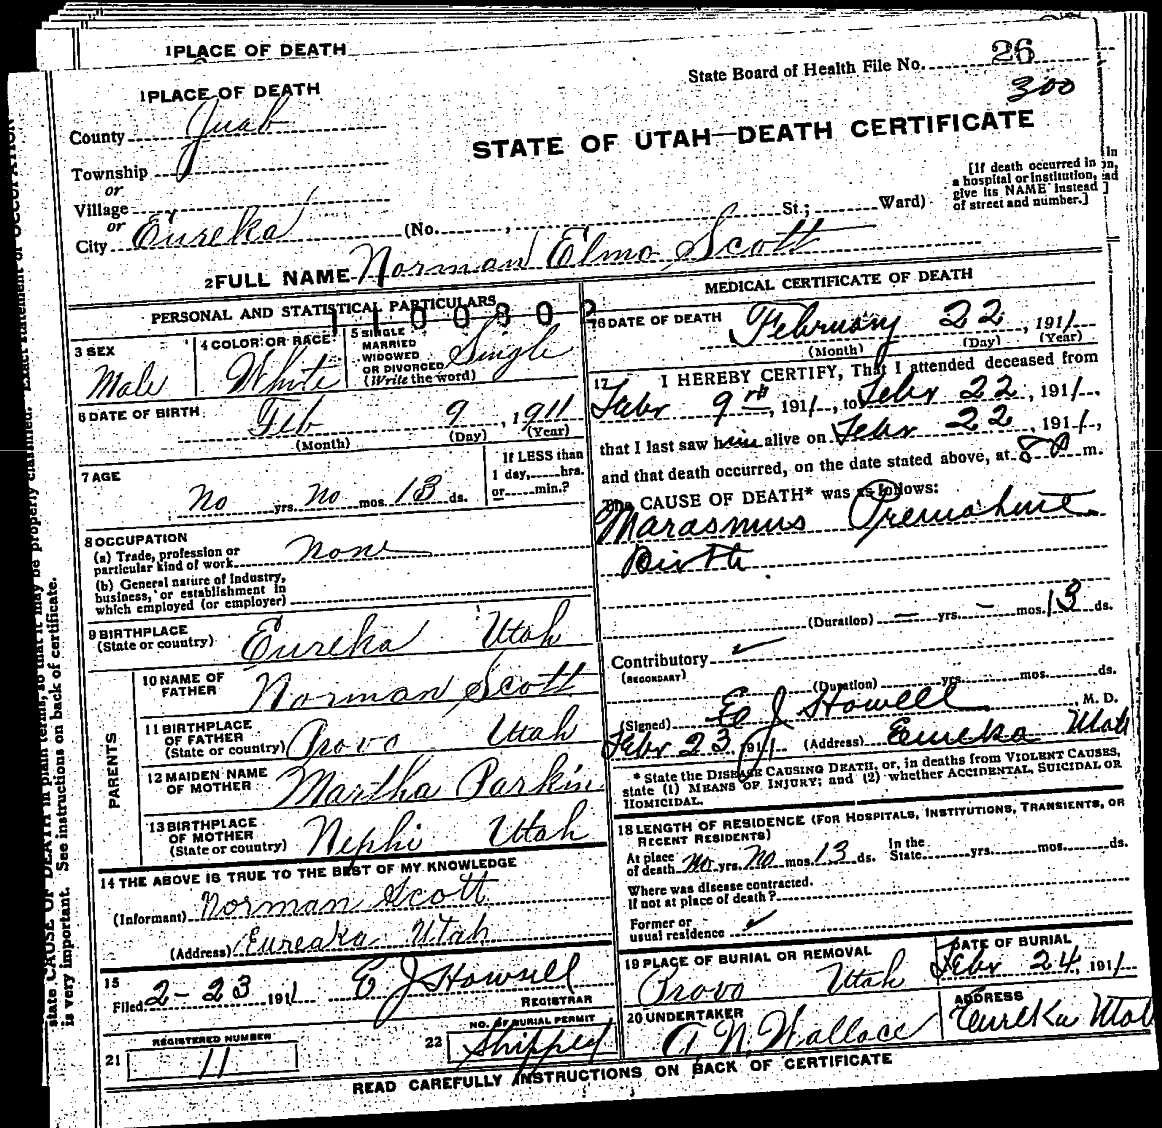 1 PLACE OF DEATH
State Board of Health File No. 26
300
1 PLACE OF DEATH
County Juab
STATE OF UTAH—DEATH CERTIFICATE
Township
or
Village
or
City Eureka (No. , St.; Ward)
[If death occurred in
a hospital or institution,
give its NAME instead
of street and number.]
2 FULL NAME Norman Elmo Scott
PERSONAL AND STATISTICAL PARTICULARS
3 SEX
Male
4 COLOR OR RACE
White
5 SINGLE
MARRIED
WIDOWED
OR DIVORCED
(Write the word)
Single
6 DATE OF BIRTH
Feb 9, 1911
(Month) (Day) (Year)
7 AGE
No yrs. No mos. 13 ds.
If LESS than
1 day, hrs.
or min.?
8 OCCUPATION
(a) Trade, profession or
particular kind of work none
(b) General nature of industry,
business, or establishment in
which employed (or employer)
9 BIRTHPLACE
(State or country) Eureka Utah
PARENTS
10 NAME OF
FATHER Norman Scott
11 BIRTHPLACE
OF FATHER
(State or country) Provo Utah
12 MAIDEN NAME
OF MOTHER Martha Parkin
13 BIRTHPLACE
OF MOTHER
(State or country) Nephi Utah
14 THE ABOVE IS TRUE TO THE BEST OF MY KNOWLEDGE
(Informant) Norman Scott
(Address) Eureaka Utah
15
Filed 2-23 1911 E J Howell
REGISTRAR
21 REGISTERED NUMBER
11
22 NO. OF BURIAL PERMIT
Shipped
MEDICAL CERTIFICATE OF DEATH
16 DATE OF DEATH
February 22, 1911
(Month) (Day) (Year)
17 I HEREBY CERTIFY, That I attended deceased from
Febr 9th, 1911, to Febr 22, 1911,
that I last saw him alive on Febr 22, 1911,
and that death occurred, on the date stated above, at m.
The CAUSE OF DEATH* was as follows:
Marasmus Premature
Birth.
(Duration) — yrs. - mos. 13 ds.
Contributory
(SECONDARY)
(Duration) yrs. mos. ds.
(Signed) E J Howell M. D.
Febr 23 1911 (Address) Eureka Utah
* State the DISEASE CAUSING DEATH, or, in deaths from VIOLENT CAUSES,
state (1) MEANS OF INJURY; and (2) whether ACCIDENTAL, SUICIDAL OR
HOMICIDAL.
18 LENGTH OF RESIDENCE (FOR HOSPITALS, INSTITUTIONS, TRANSIENTS, OR
RECENT RESIDENTS)
At place
of death no yrs. no mos. 13 ds. In the
State yrs. mos. ds.
Where was disease contracted.
If not at place of death?
Former or
usual residence
19 PLACE OF BURIAL OR REMOVAL
Provo Utah
DATE OF BURIAL
Febr 24, 1911
20 UNDERTAKER
A. N. Wallace
ADDRESS
Eureka Utah
READ CAREFULLY INSTRUCTIONS ON BACK OF CERTIFICATE
state CAUSE OF DEATH in plain terms, so that it may be properly classified. Exact statement of OCCUPATION
is very important. See instructions on back of certificate.